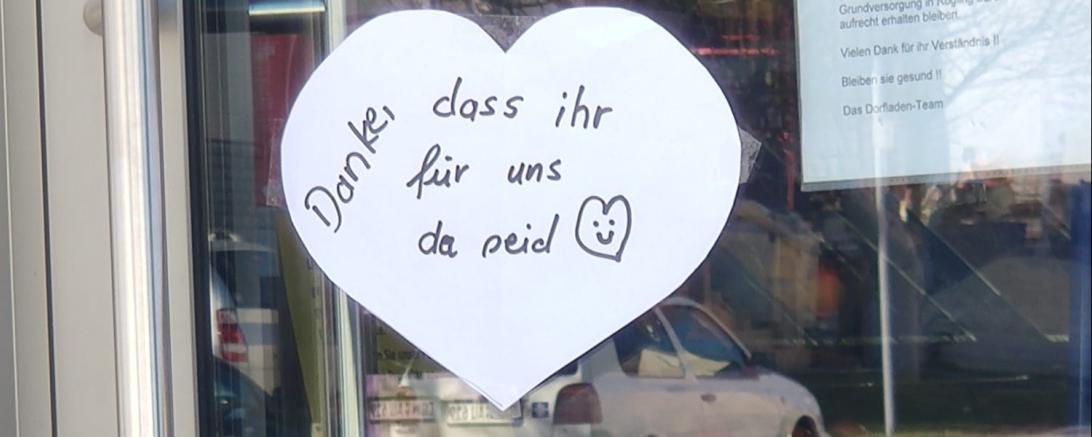 Danke,
dass ihr
für uns
da seid
Grundversorgung in
aufrecht erhalten bleiben.
Vielen Dank für ihr Verständnis !!
Bleiben sie gesund !!
Das Dorfladen-Team